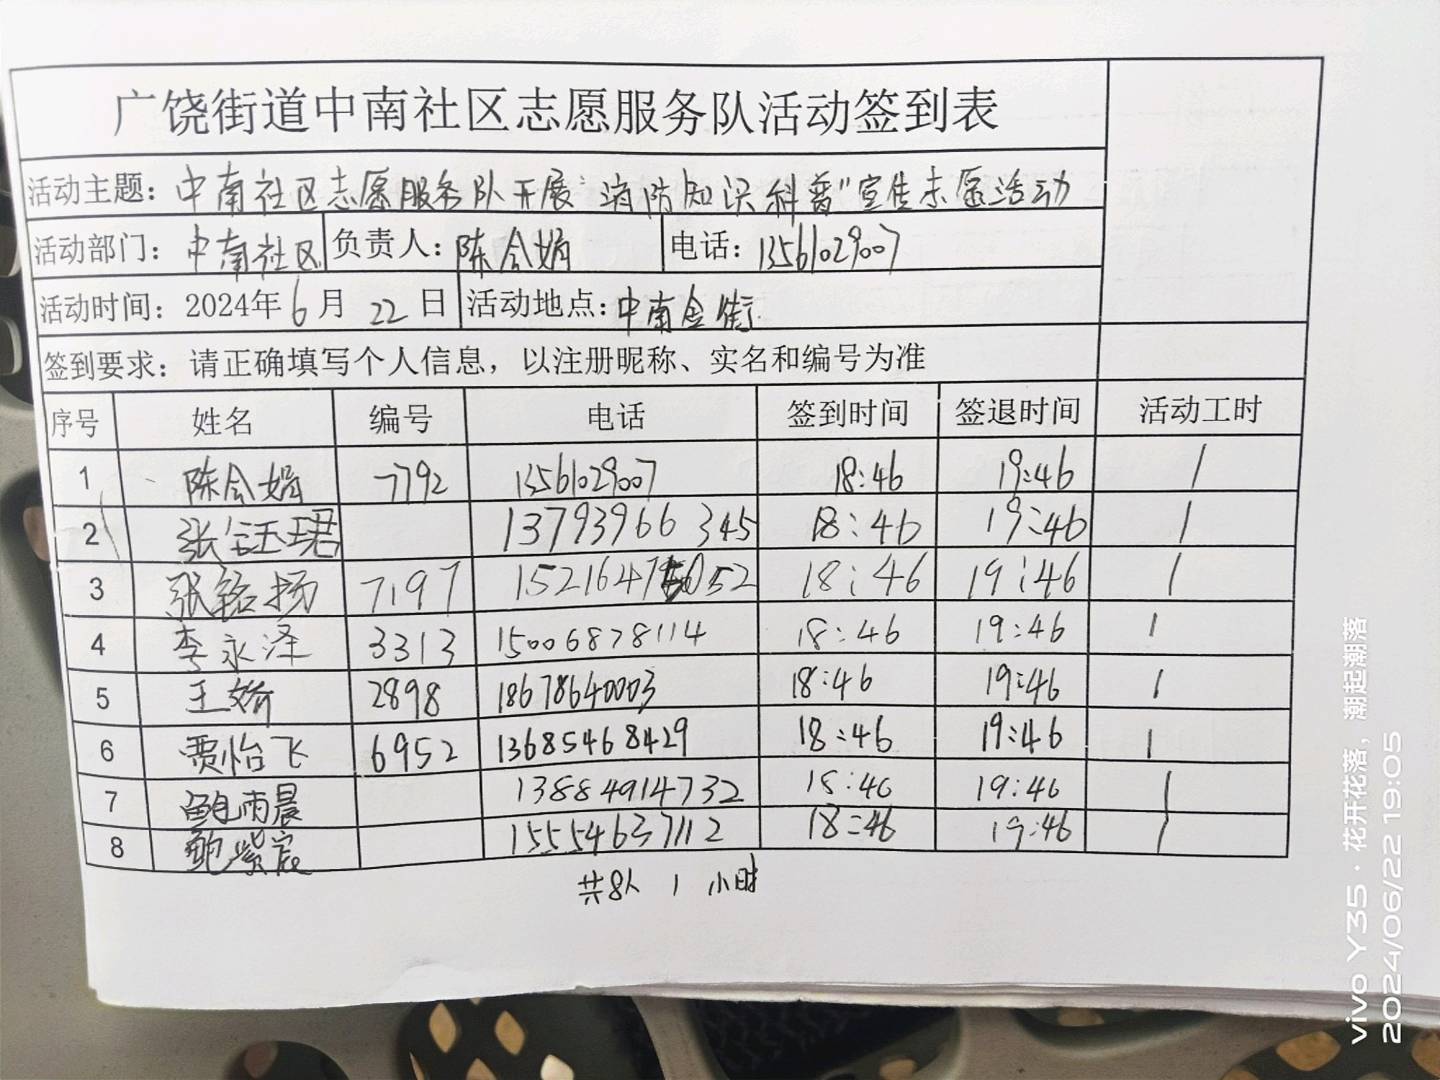 广饶街道中南社区志愿服务队活动签到表
活动主题：中南社区志愿服务队开展“消防知识科普”宣传志愿活动
活动部门：中南社区 负责人：陈会娟 电话：13561029007
活动时间：2024年6月22日 活动地点：中南金街
签到要求：请正确填写个人信息，以注册昵称、实名和编号为准
序号 姓名 编号 电话 签到时间 签退时间 活动工时
1 陈会娟 7792 13561029007 18:46 19:46 1
2 张钰珺 13793966345 18:46 19:46 1
3 张铭扬 7197 18:46 19:46 1
4 李永泽 3313 15006878114 18:46 19:46 1
5 王娇 2898 18678640003 18:46 19:46 1
6 贾怡飞 6952 13685468429 18:46 19:46 1
7 鲍雨晨 13884914732 18:46 19:46 1
8 鲍紫宸 15554637112 18:46 19:46 1
共8人 1 小时
vivo Y35 · 花开花落，潮起潮落
2024/06/22 19:05